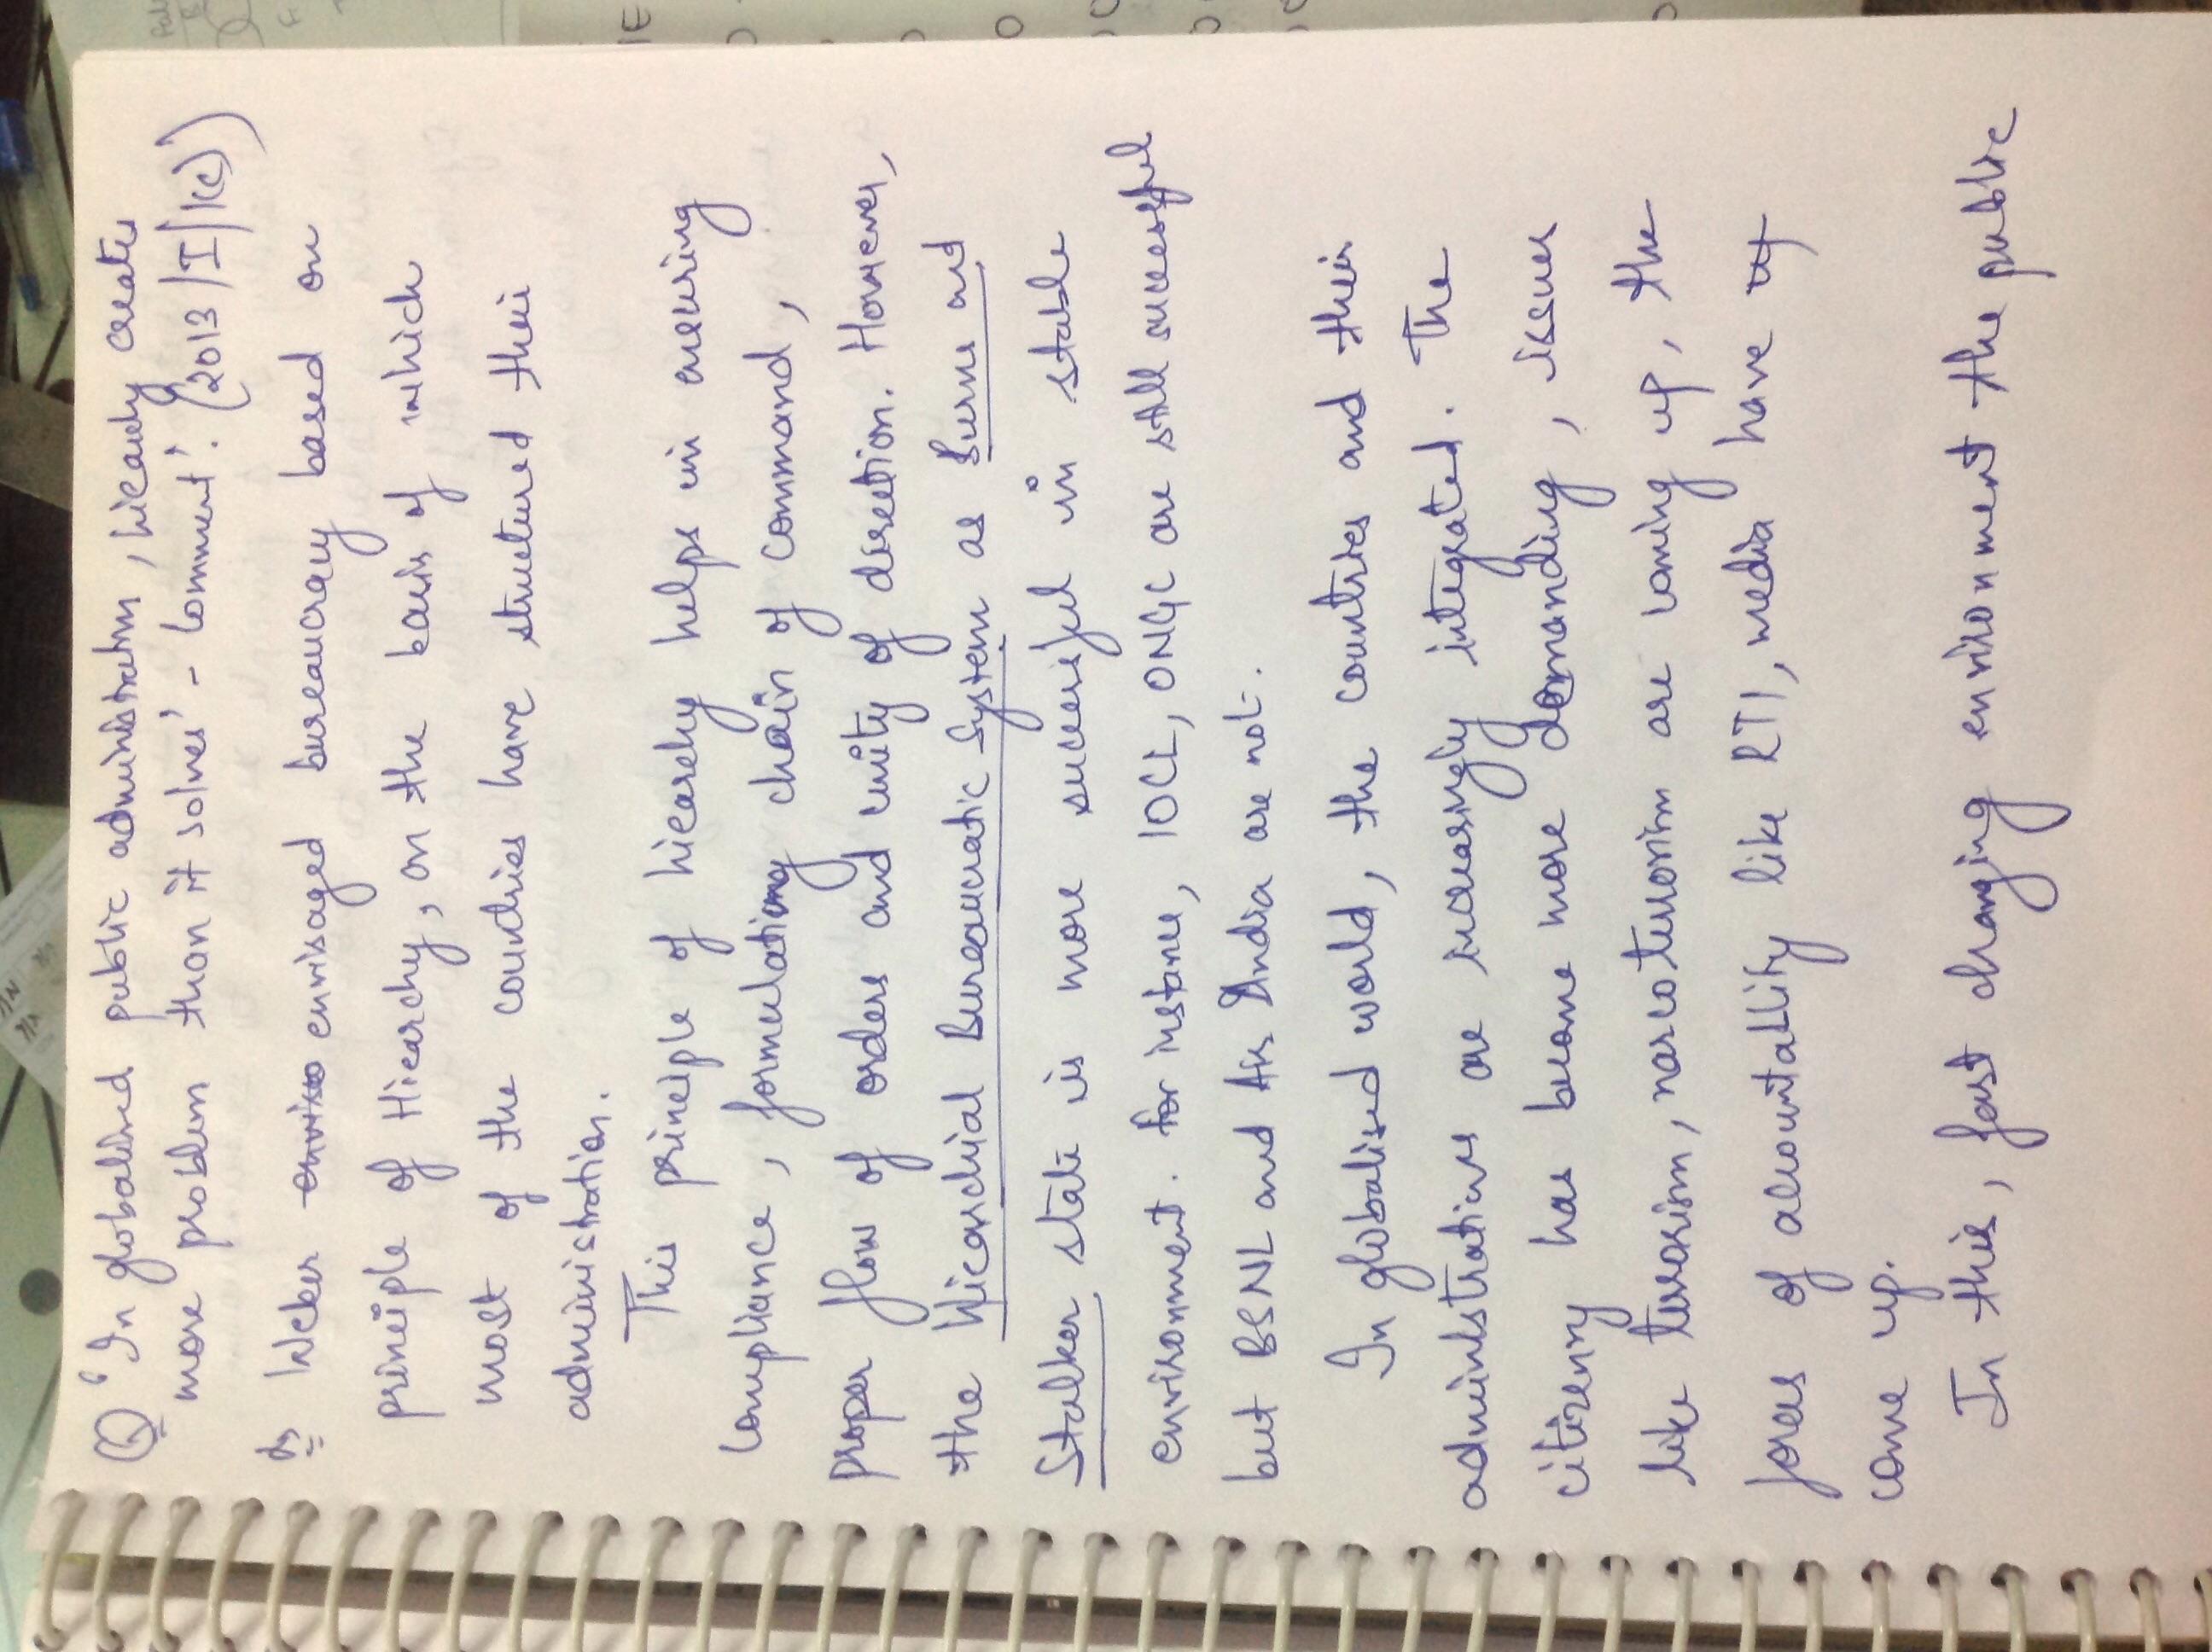 Q 'In globalised public administration, hicarchy creates
more problem than it solves' - Comment'. (2013/I/1(c))
As Weber enviso envisaged bureaucracy based on
principle of Hiearchy, on the basis of which
most of the countries have structured their
administration.
This principle of hiearchy helps in ensuring
compliance, formulationg chain of command,
proper flow of orders and unity of direction. However,
the Hicarchial Bureaucratic System as Burns and
Stalker state is more successful in stable
environment. For instance, IOCL, ONGC are still successful
but BSNL and Air India are not.
In globalised world, the countries and their
administrations are increasingly integrated. The
citizenry has become more demanding, issues
like terrorism, narcoterrorism are coming up, the
forces of accountability like RTI, media have up
come up.
In this, fast changing environment the public